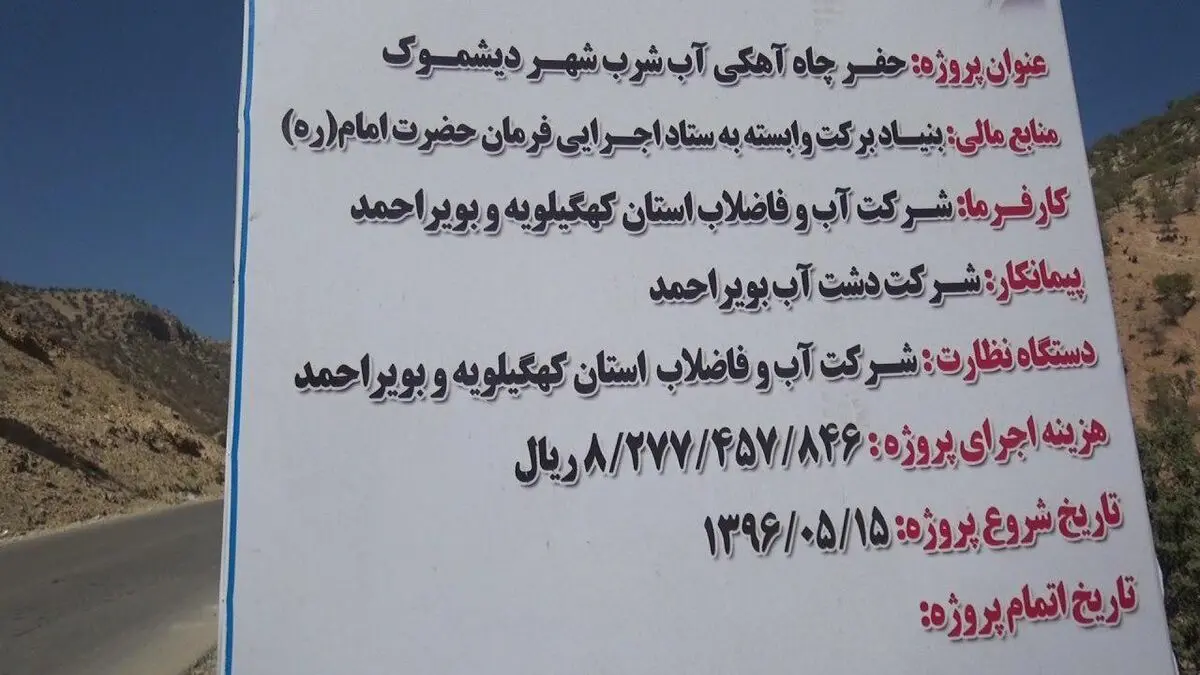 عنوان پروژه: حفر چاه آهکی آب شرب شهر دیشموک
منابع مالی: بنیاد برکت وابسته به ستاد اجرایی فرمان حضرت امام(ره)
کارفرما: شرکت آب و فاضلاب استان کهگیلویه و بویراحمد
پیمانکار: شرکت دشت آب بویراحمد
دستگاه نظارت: شرکت آب و فاضلاب استان کهگیلویه و بویراحمد
هزینه اجرای پروژه: ۸/۲۷۷/۴۵۷/۸۴۶ ریال
تاریخ شروع پروژه: ۱۳۹۶/۰۵/۱۵
تاریخ اتمام پروژه: